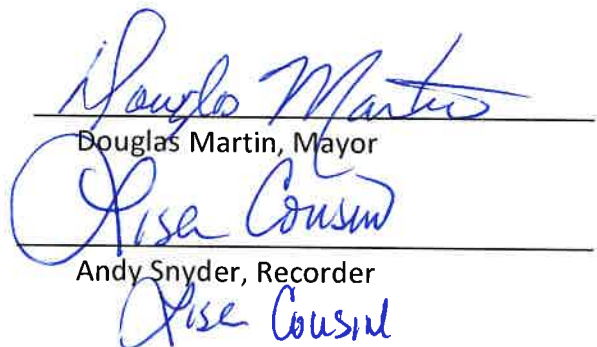 Douglas Martin
Douglas Martin, Mayor
Lisa Cousin
Andy Snyder, Recorder
Lisa Cousin